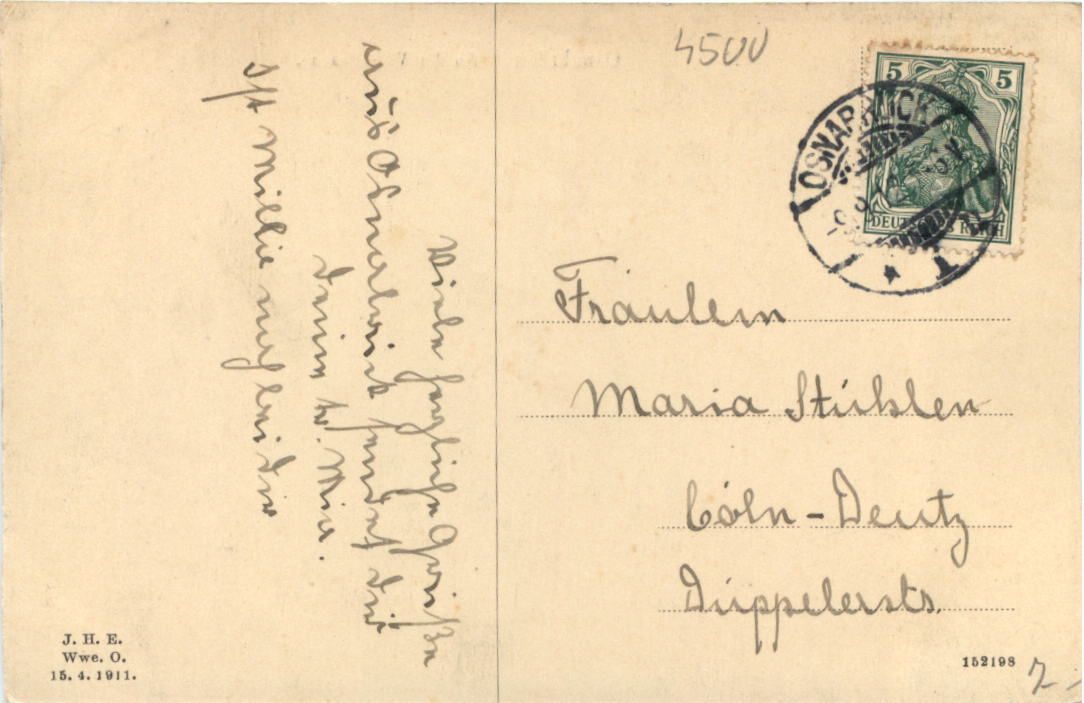 Viele herzliche Grüße
aus Osnabrück sendet dir
deine Mia.
Ist Millie noch bei dir
J. H. E.
Wwe. O.
15. 4. 1911.
4500
5 5
DEUTSCHES REICH
OSNABRÜCK
Fräulein
Maria Stühlen
Cöln-Deutz
Düppelerstr.
152198